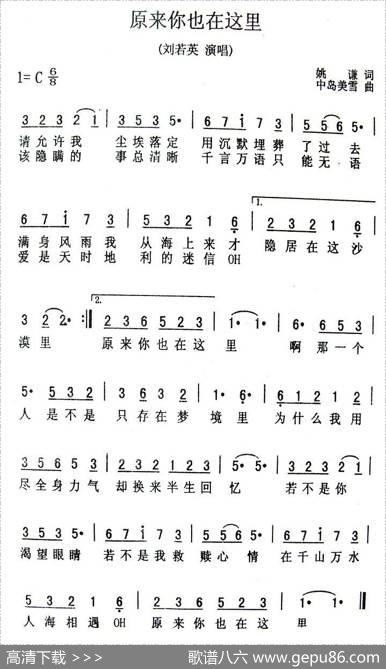 原来你也在这里
(刘若英 演唱)
1=C 6/8
姚 谦 词
中岛美雪 曲
3 2 3 2 1 | 3 5 3 5· | 6 7 1 7 3 | 5 5 6 5· |
请允许我 尘埃落定 用沉默埋葬 了过去
该隐瞒的 事总清晰 千言万语只 能无语
6 7 1 7 3 | 5 3 2 1 6 | 2 3 6 5 2 3 |
1.
满身风雨我 从海上来才 隐居在这沙
爱是天时地 利的迷信OH
3 2 2· :‖ 2 3 6 5 2 3 | 1· 1· | 6· 6 5 3 |
2.
漠里 原来你也在这 里 啊那一个
5· 5 3 2 | 3 6 3 2 | 1· 1· | 6 1 2 1 2 |
人 是不是 只存在梦 境里 为什么我用
3 5 6 5 3 | 2 3 2 1 2 3 | 5· 5· | 3 2 3 2 1 |
尽全身力气 却换来半生回 忆 若不是你
3 5 3 5· | 6 7 1 7 3 | 5 5 6 5 | 6 7 1 7 3 |
渴望眼睛 若不是我救 赎心 情 在千山万水
5 3 2 1 6 | 2 3 6 5 2 3 | 1· 1· | 1· 0· |
人海相遇 OH 原来你也在这 里
高清下载 >>>
歌谱八六 www.gepu86.com